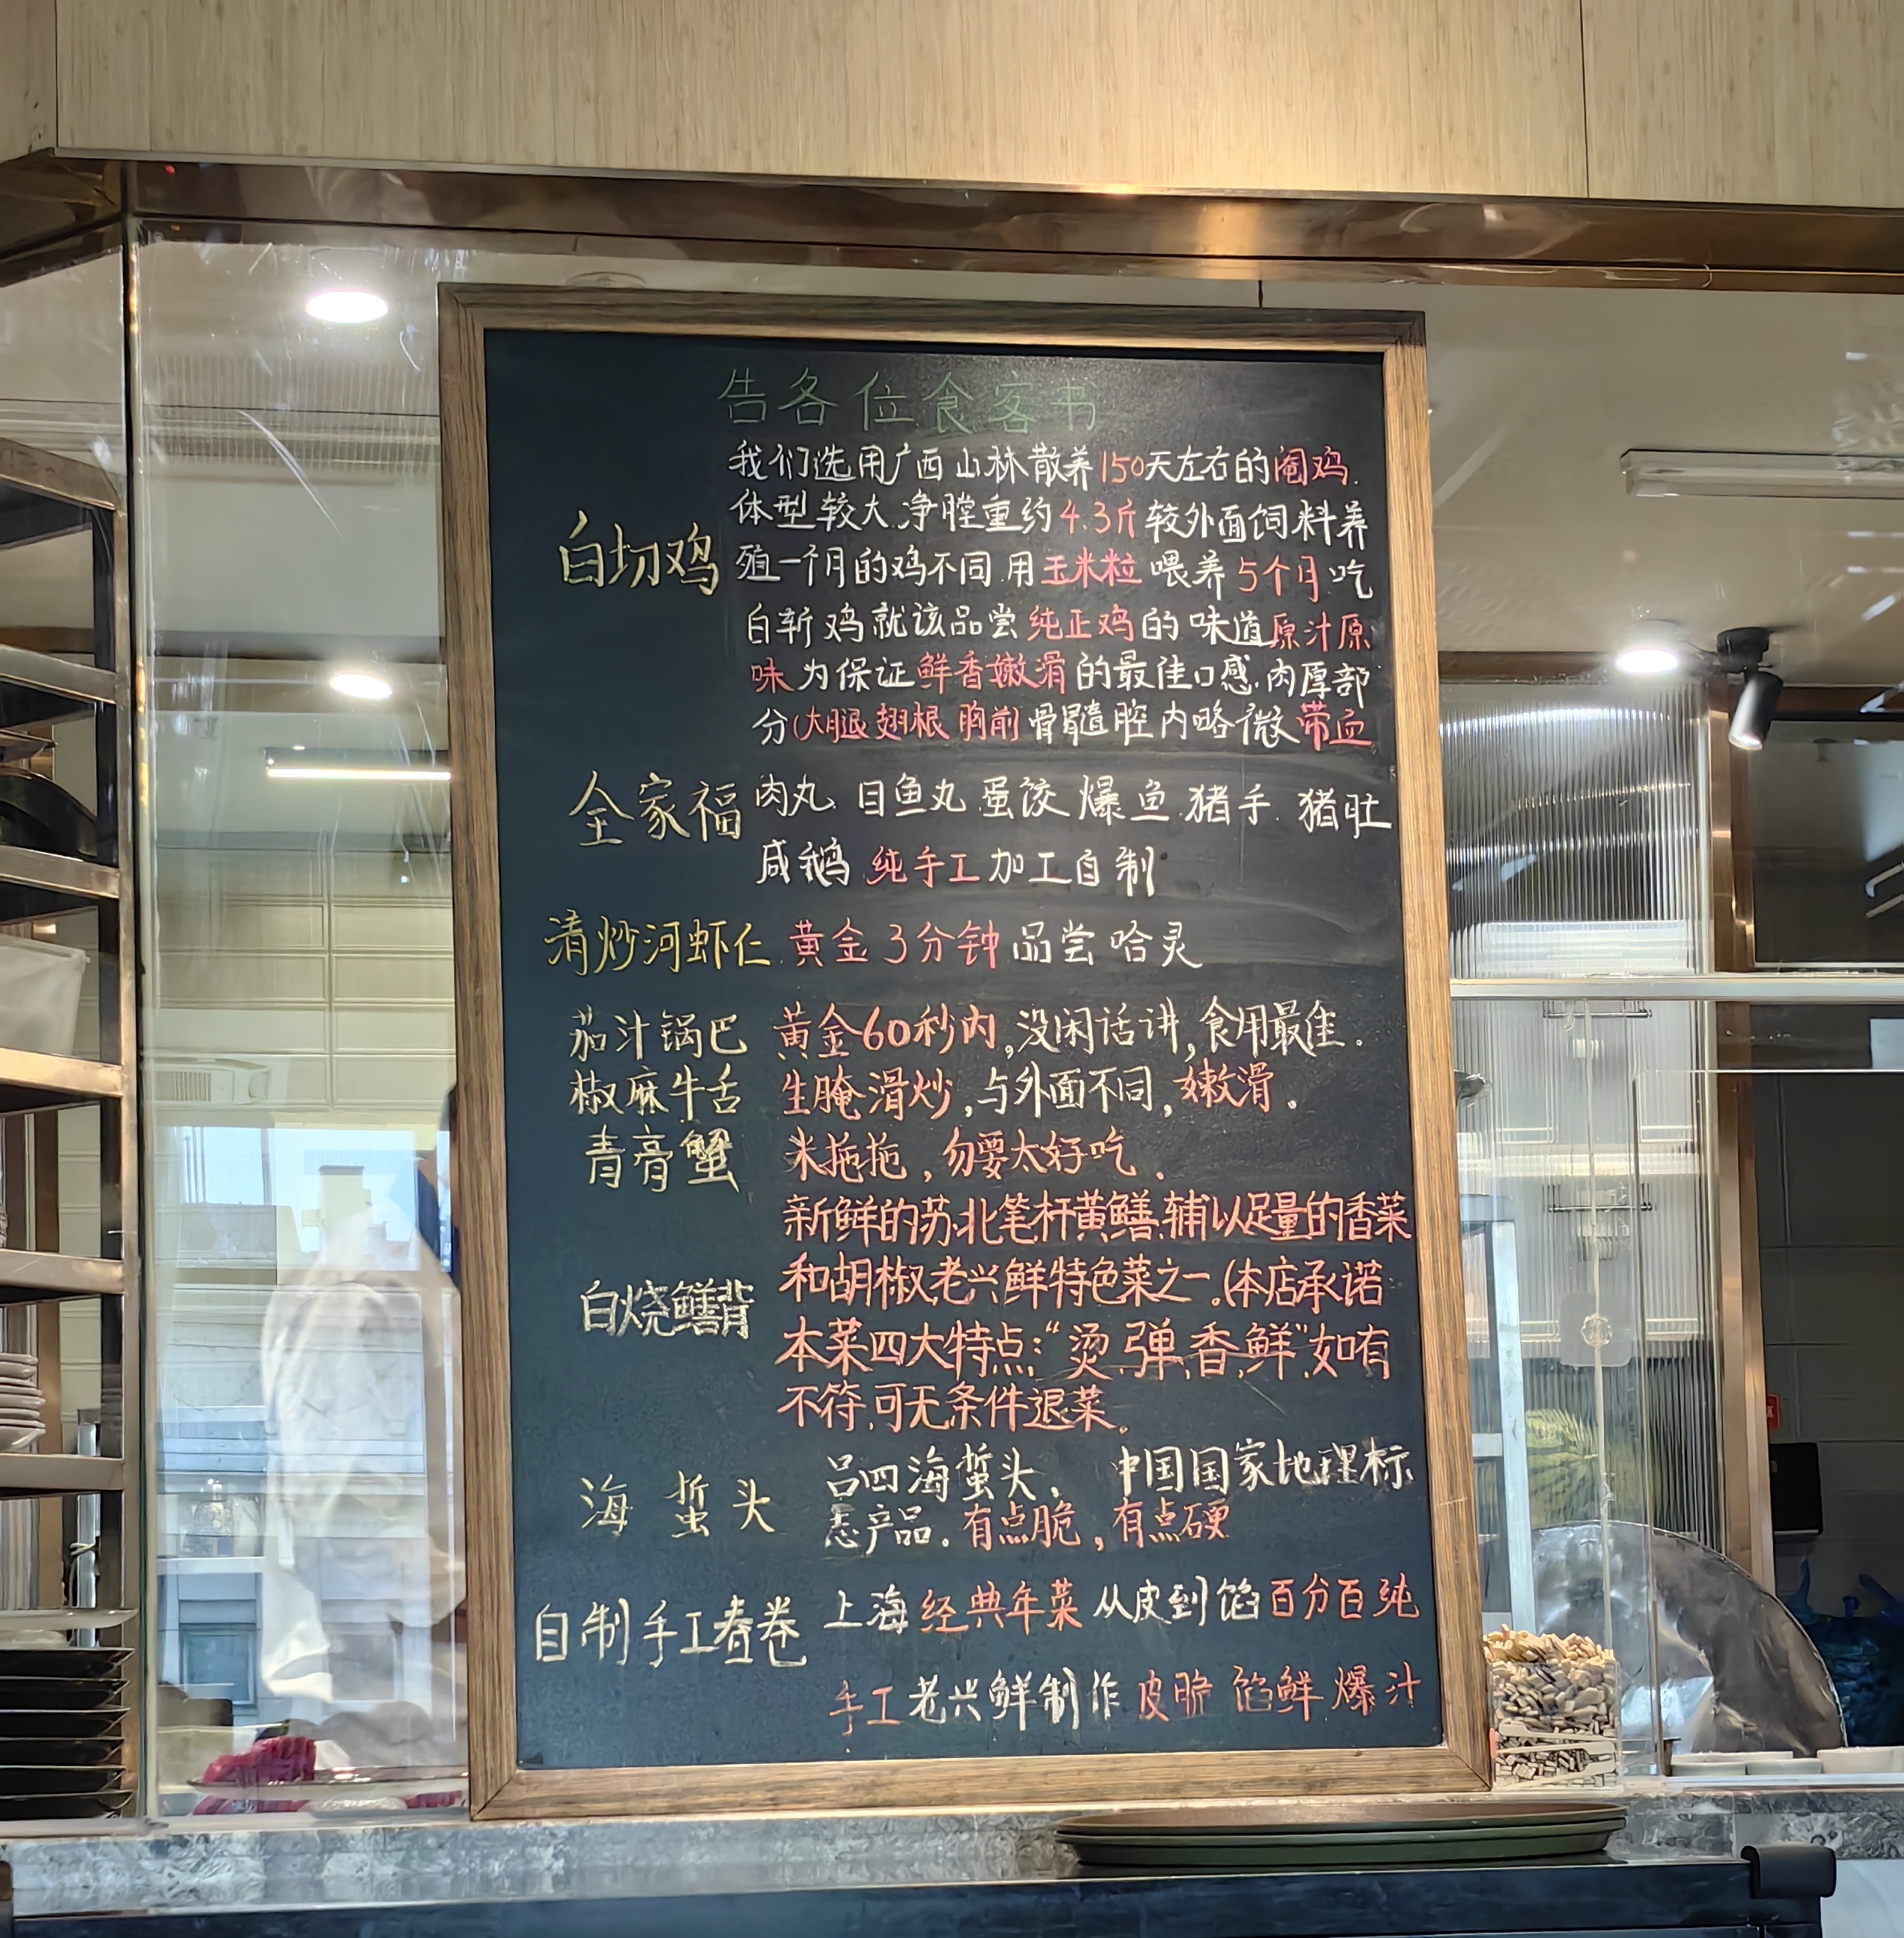 告各位食客书
我们选用广西山林散养150天左右的阉鸡.
体型较大.净膛重约4.3斤较外面饲料养
白切鸡
殖一个月的鸡不同.用玉米粒喂养5个月.吃
白斩鸡就该品尝纯正鸡的味道原汁原
味为保证鲜香嫩滑的最佳口感.肉厚部
分(大腿翅根胸前)骨髓腔内略微带血
全家福
肉丸.目鱼丸蛋饺爆鱼.猪手.猪肚
咸鹅纯手工加工自制
清炒河虾仁.黄金3分钟品尝哈灵
茄汁锅巴 黄金60秒内,没闲话讲,食用最佳.
椒麻牛舌 生腌滑炒,与外面不同,嫩滑.
青膏蟹 米拖拖,勿要太好吃.
新鲜的苏北笔杆黄鳝.辅以足量的香菜
白烧鳝背
和胡椒,老兴鲜特色菜之一。(本店承诺:
本菜四大特点:“烫.弹.香.鲜”如有
不符,可无条件退菜。
海蜇头
吕四海蜇头、中国国家地理标
志产品.有点脆,有点硬
自制手工春卷
上海经典年菜从皮到馅百分百纯
手工老兴鲜制作皮脆馅鲜爆汁